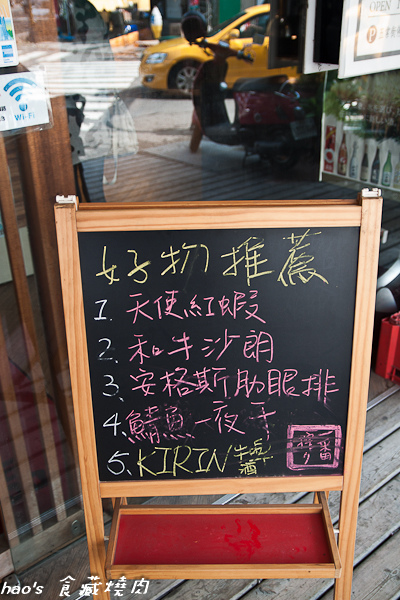 OPEN
Wi-Fi
好物推薦
1. 天使紅蝦
2. 和牛沙朗
3. 安格斯肋眼排
4. 鯖魚一夜干
5. KIRIN 生啤酒
一番搾り
hao's 食藏燒肉